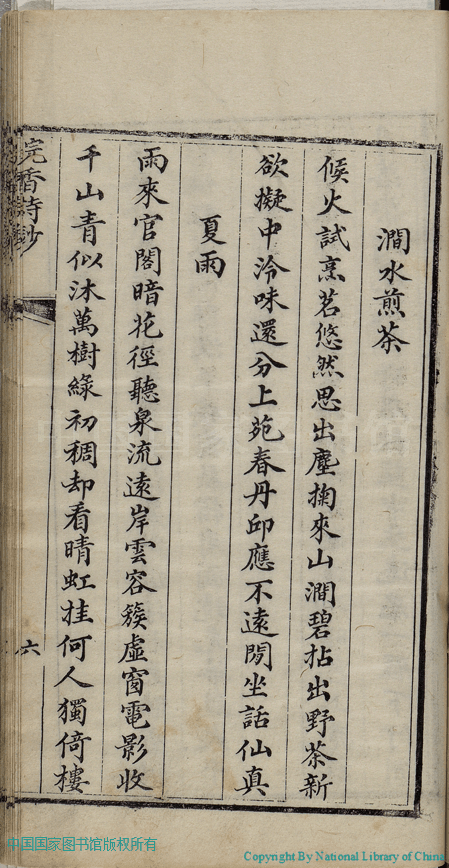 澗水煎茶
候火試烹茗悠然思出塵掬來山澗碧拈出野茶新
欲擬中泠味還分上苑春丹邱應不遠閒坐話仙真
夏雨
雨來官閣暗花徑聽泉流遠岸雲容簇虛窗電影收
千山青似沐萬樹綠初稠却看晴虹挂何人獨倚樓
完香詩鈔
六
中国国家图书馆版权所有
Copyright By National Library of China